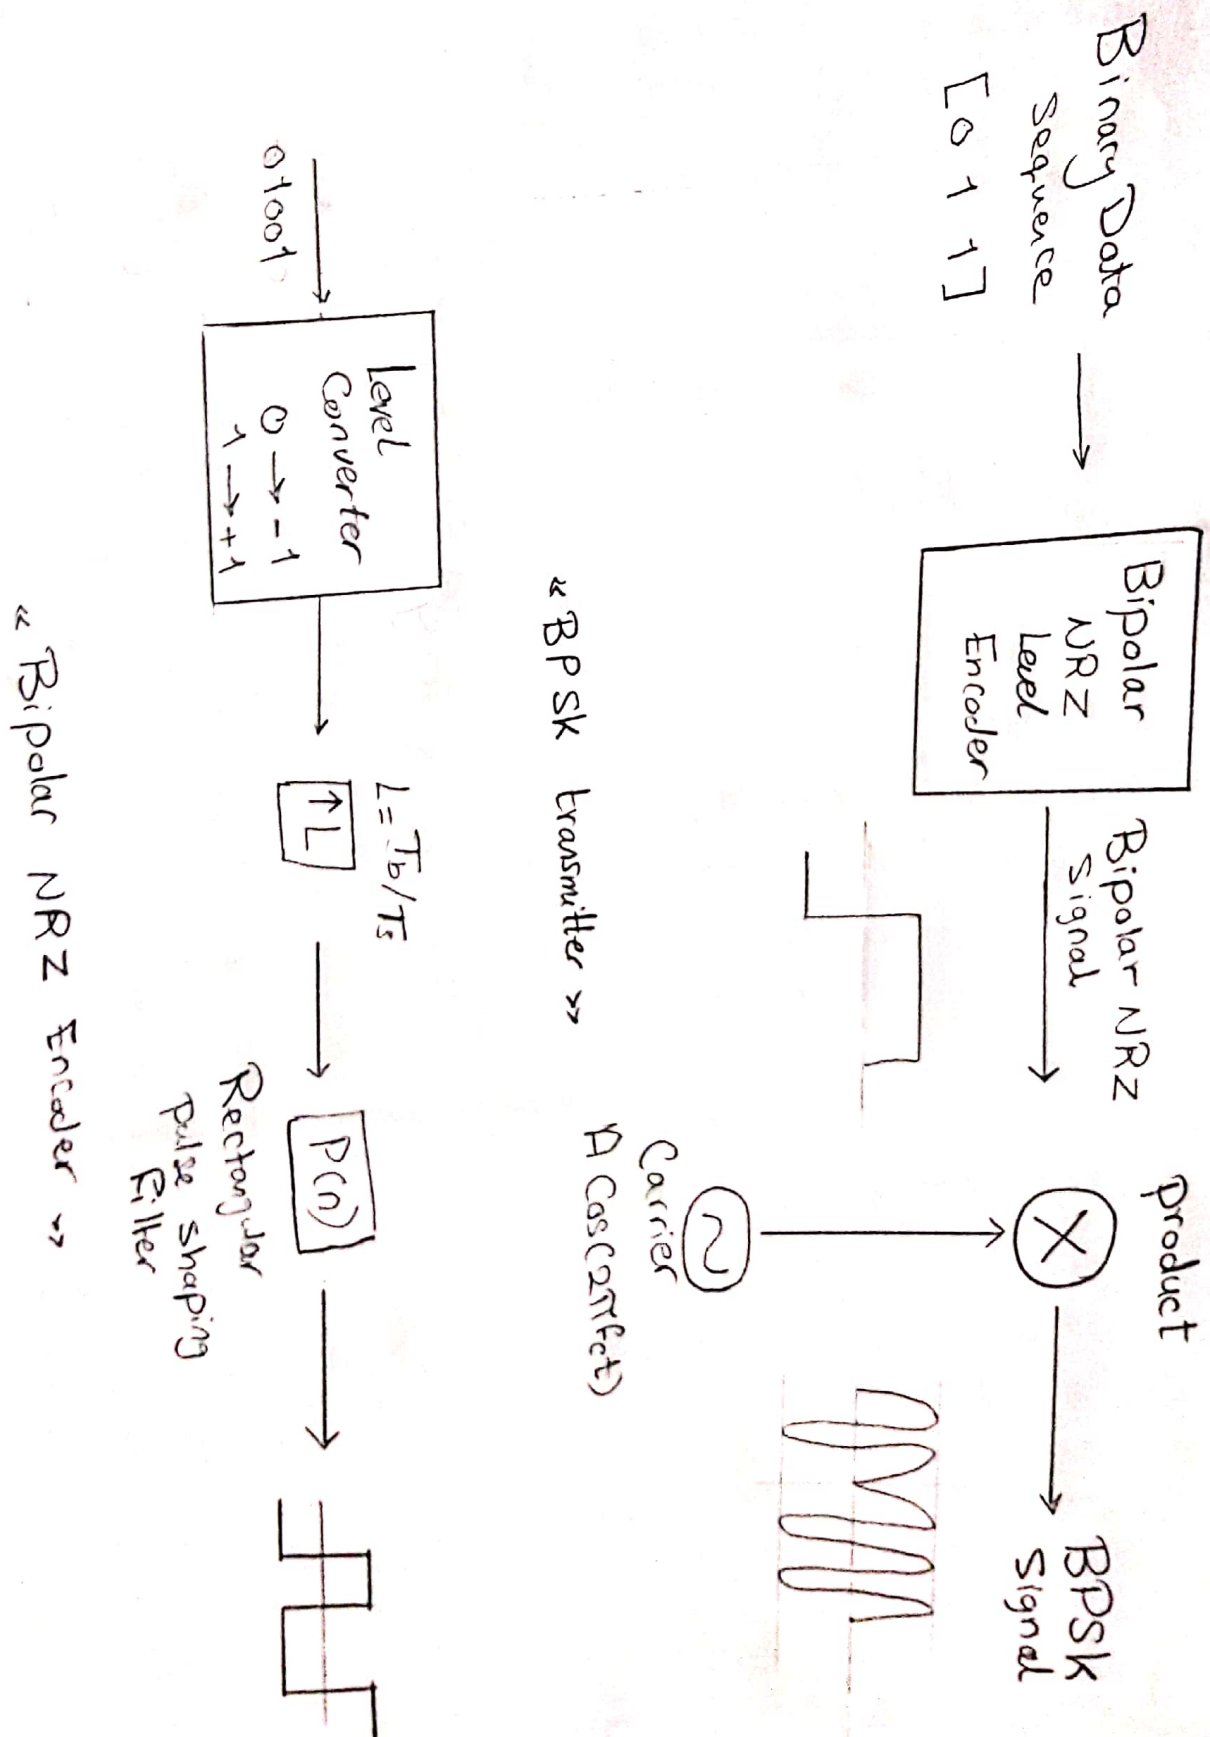 Binary Data
Sequence
[0 1 1]
Bipolar
NRZ
Level
Encoder
Bipolar NRZ
Signal
Product
X
~
Carrier
A Cos(2πfct)
BPSK
Signal
« BPSK transmitter »
01001
Level
Converter
0 → -1
1 → +1
L = Tb/Ts
↑ L
P(n)
Rectangular
pulse shaping
Filter
« Bipolar NRZ Encoder »